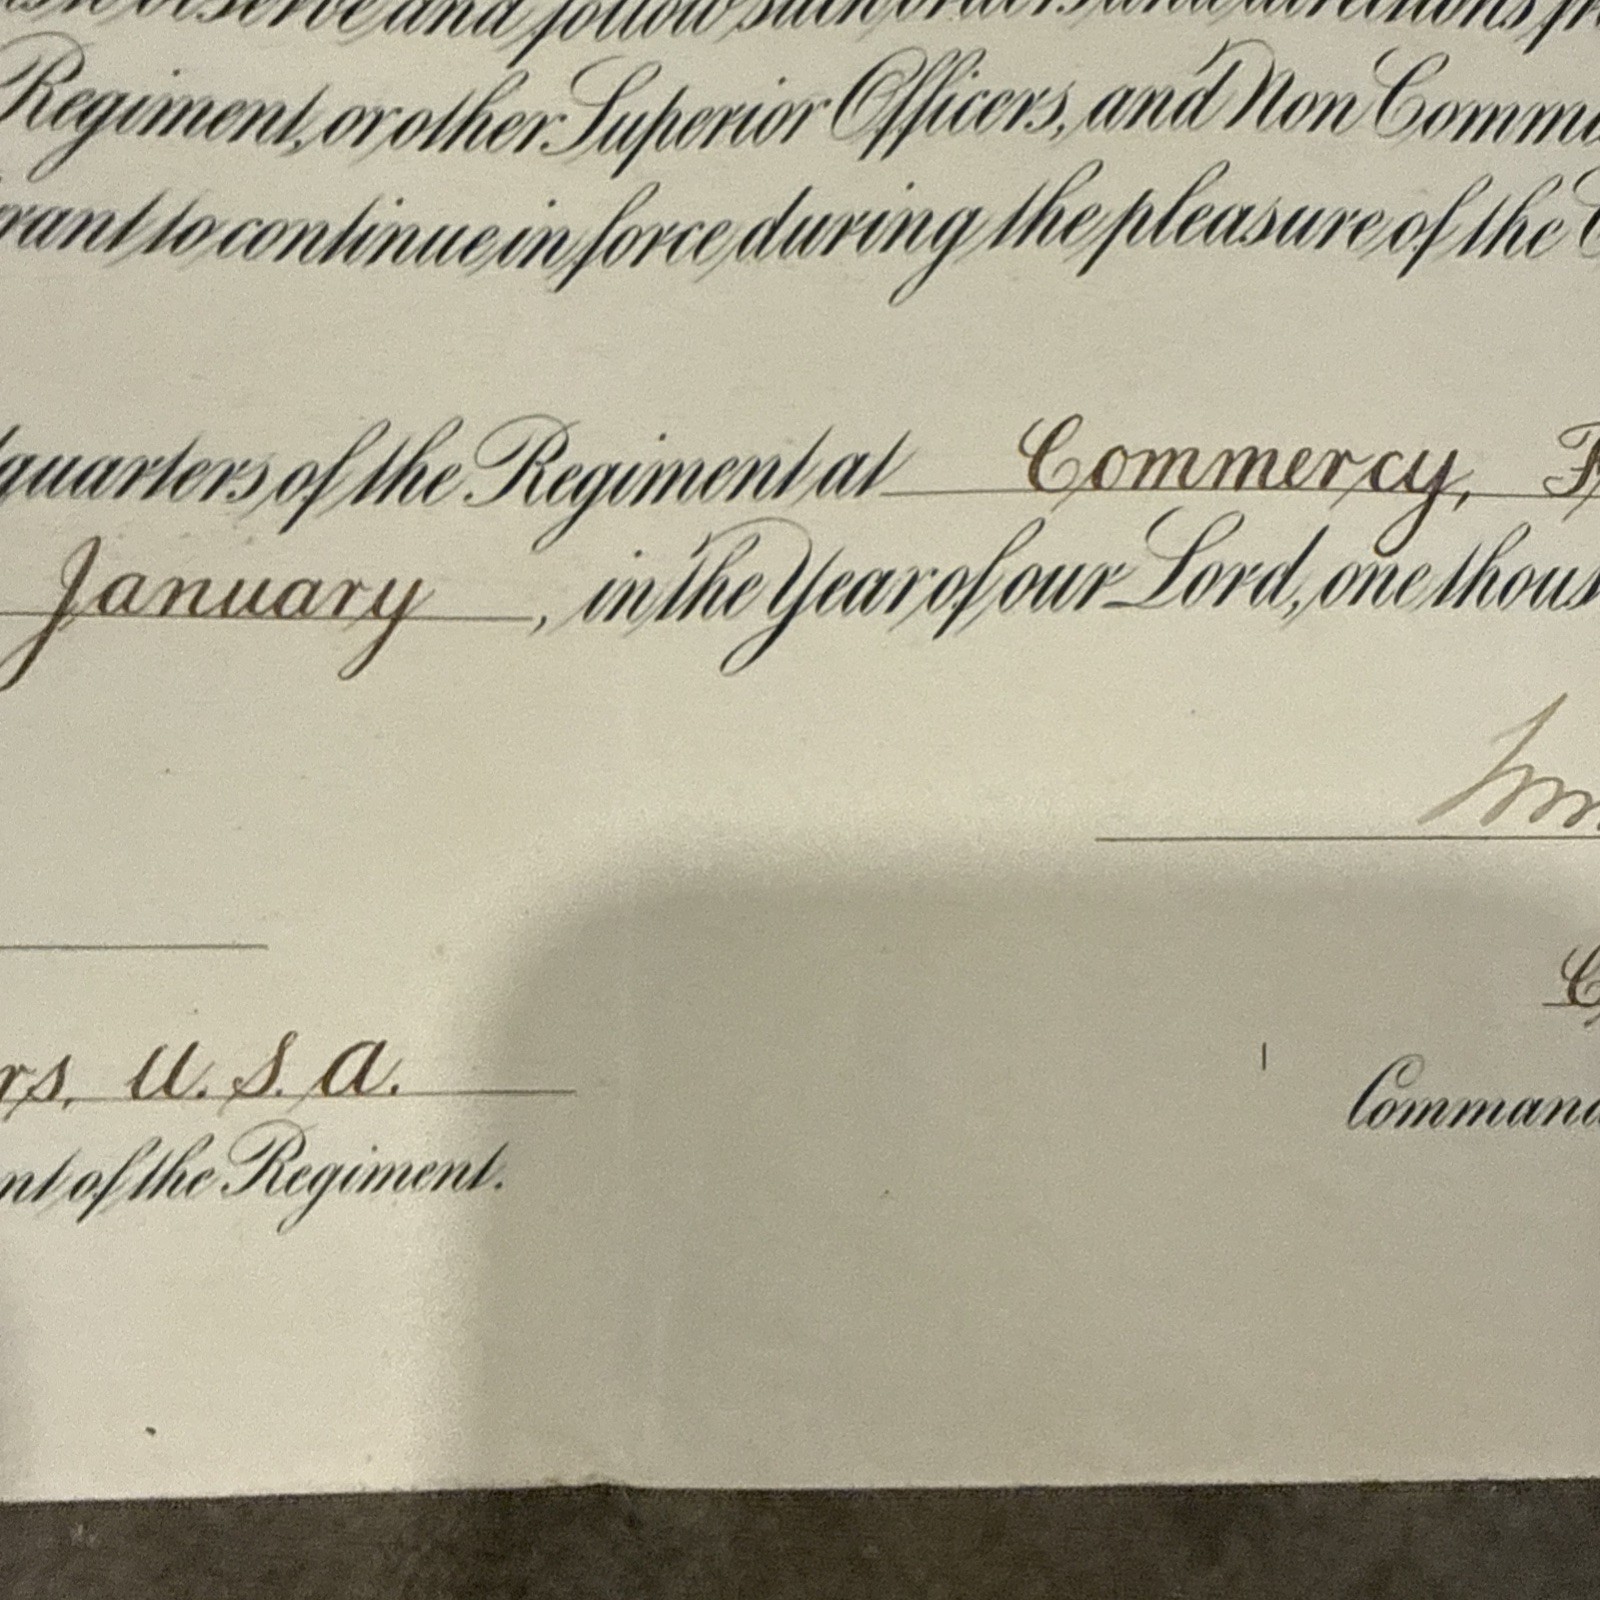 observe and follow such orders and directions
Regiment, or other Superior Officers, and Non
to continue in force during the pleasure of the
of the Regiment at Commercy,
January, in the Year of our Lord, one
U. S. A.
of the Regiment.